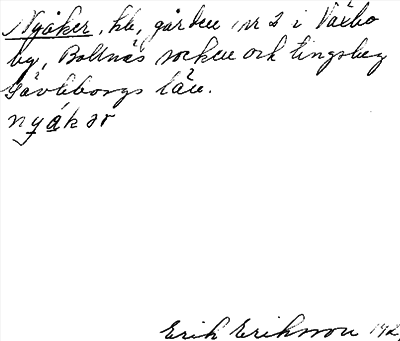 Nyåker, hb, gården nr 2 i Växbo
by, Bollnäs socken och tingslag
Gävleborgs län.
nyákər
Erik Eriksson 192